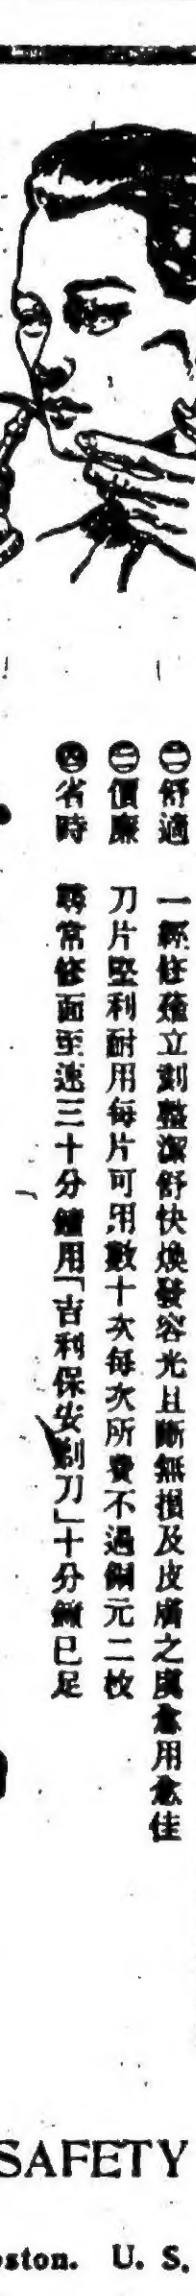 ㊁舒適 一經修薙立刻整潔舒快煥發容光且斷無損及皮膚之虞愈用愈佳
㊂價廉 刀片堅利耐用每片可用數十次每次所費不過銅元二枚
㊃省時 尋常修面至速三十分鐘用「吉利保安剃刀」十分鐘已足
SAFETY
ston. U. S.